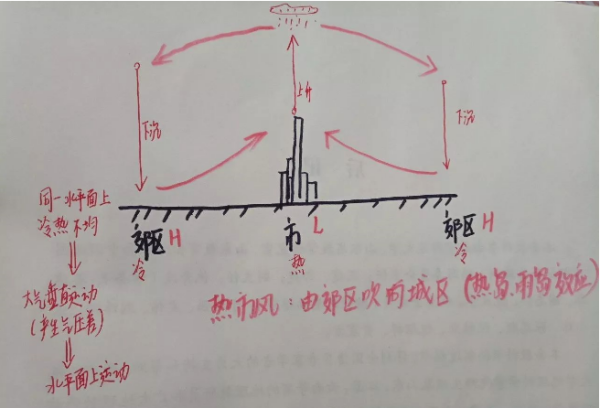 上升
下沉
下沉
同一水平面上
冷热不均
大气垂直运动
(产生气压差)
水平面上运动
郊区 H
冷
市 L
热
郊区 H
冷
热市风：由郊区吹向城区(热岛、雨岛效应)